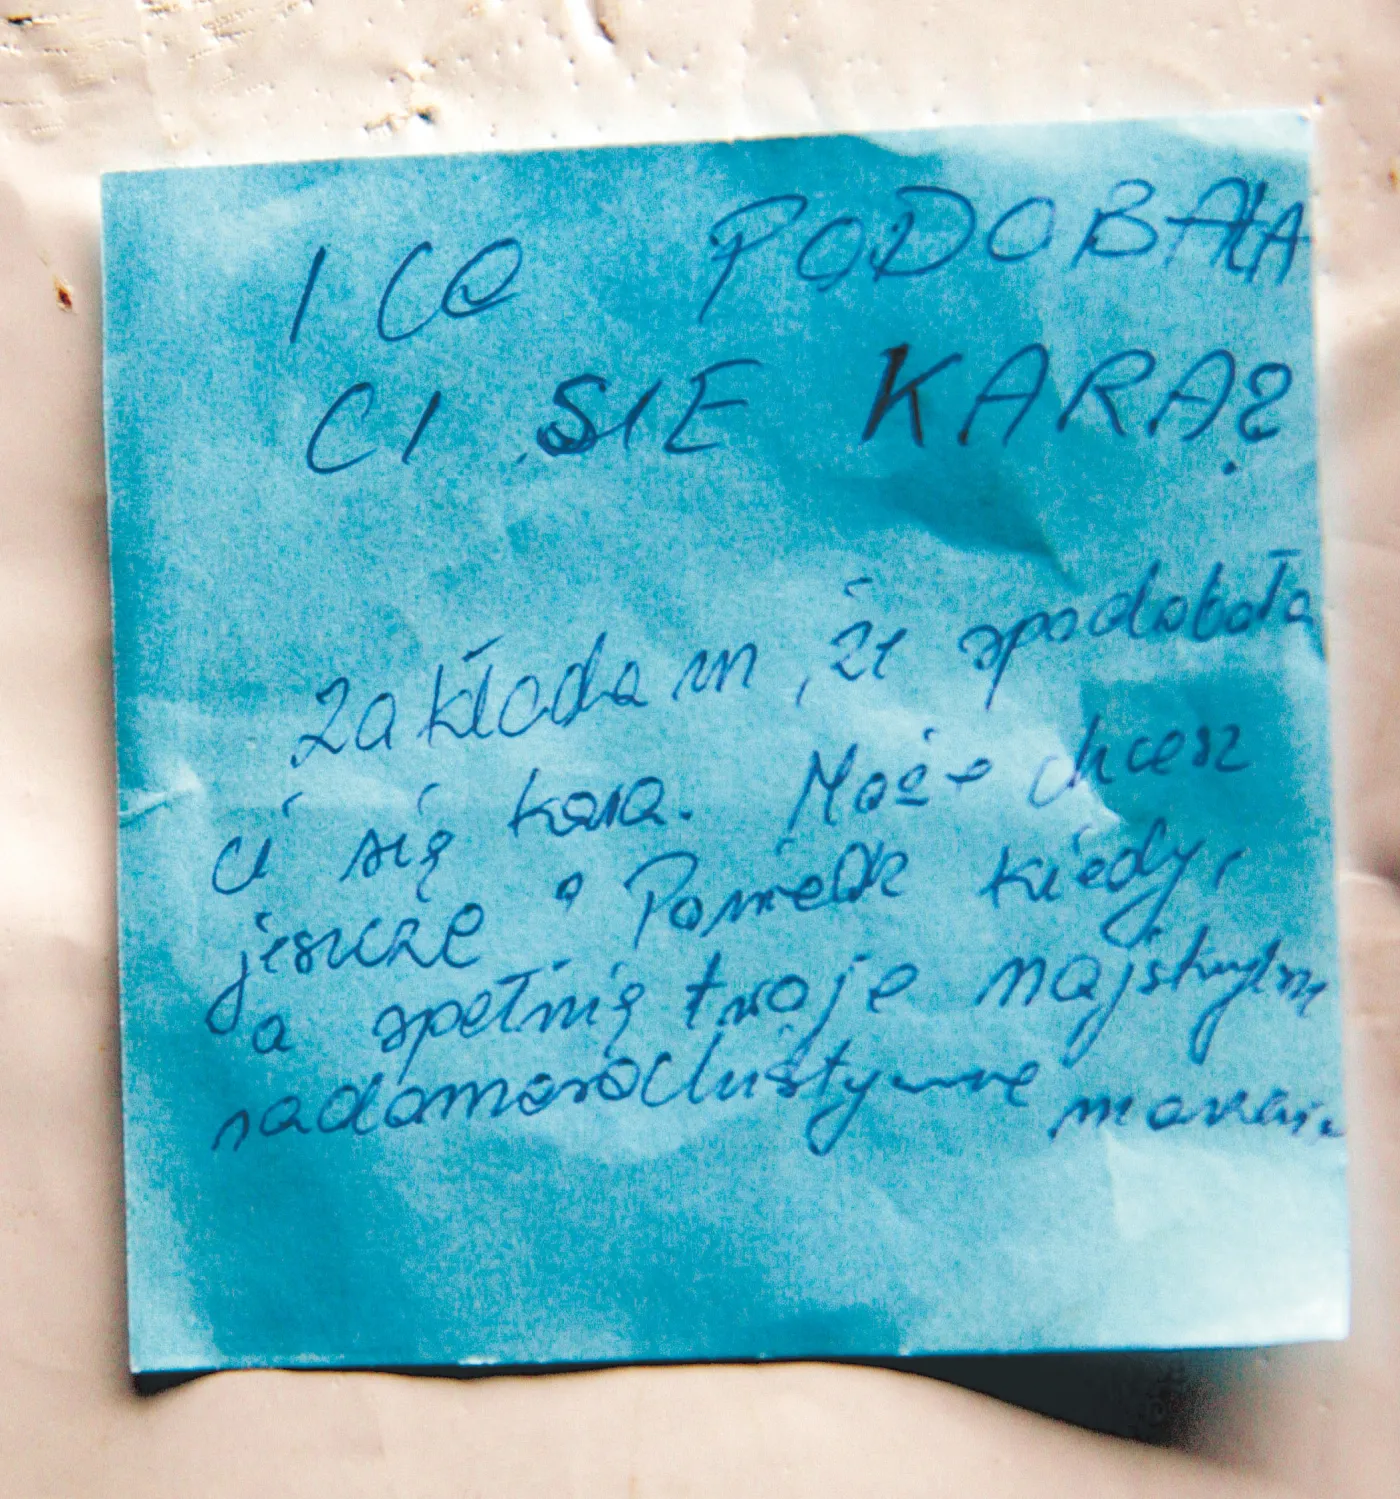 I CO PODOBAŁA
CI SIE KARA?
Zakładam, że spodobała
ci się kara. Może chcesz
jeszcze? Powiedz kiedy,
a spełnię twoje najskrytsze
sadomasochistyczne marzenia